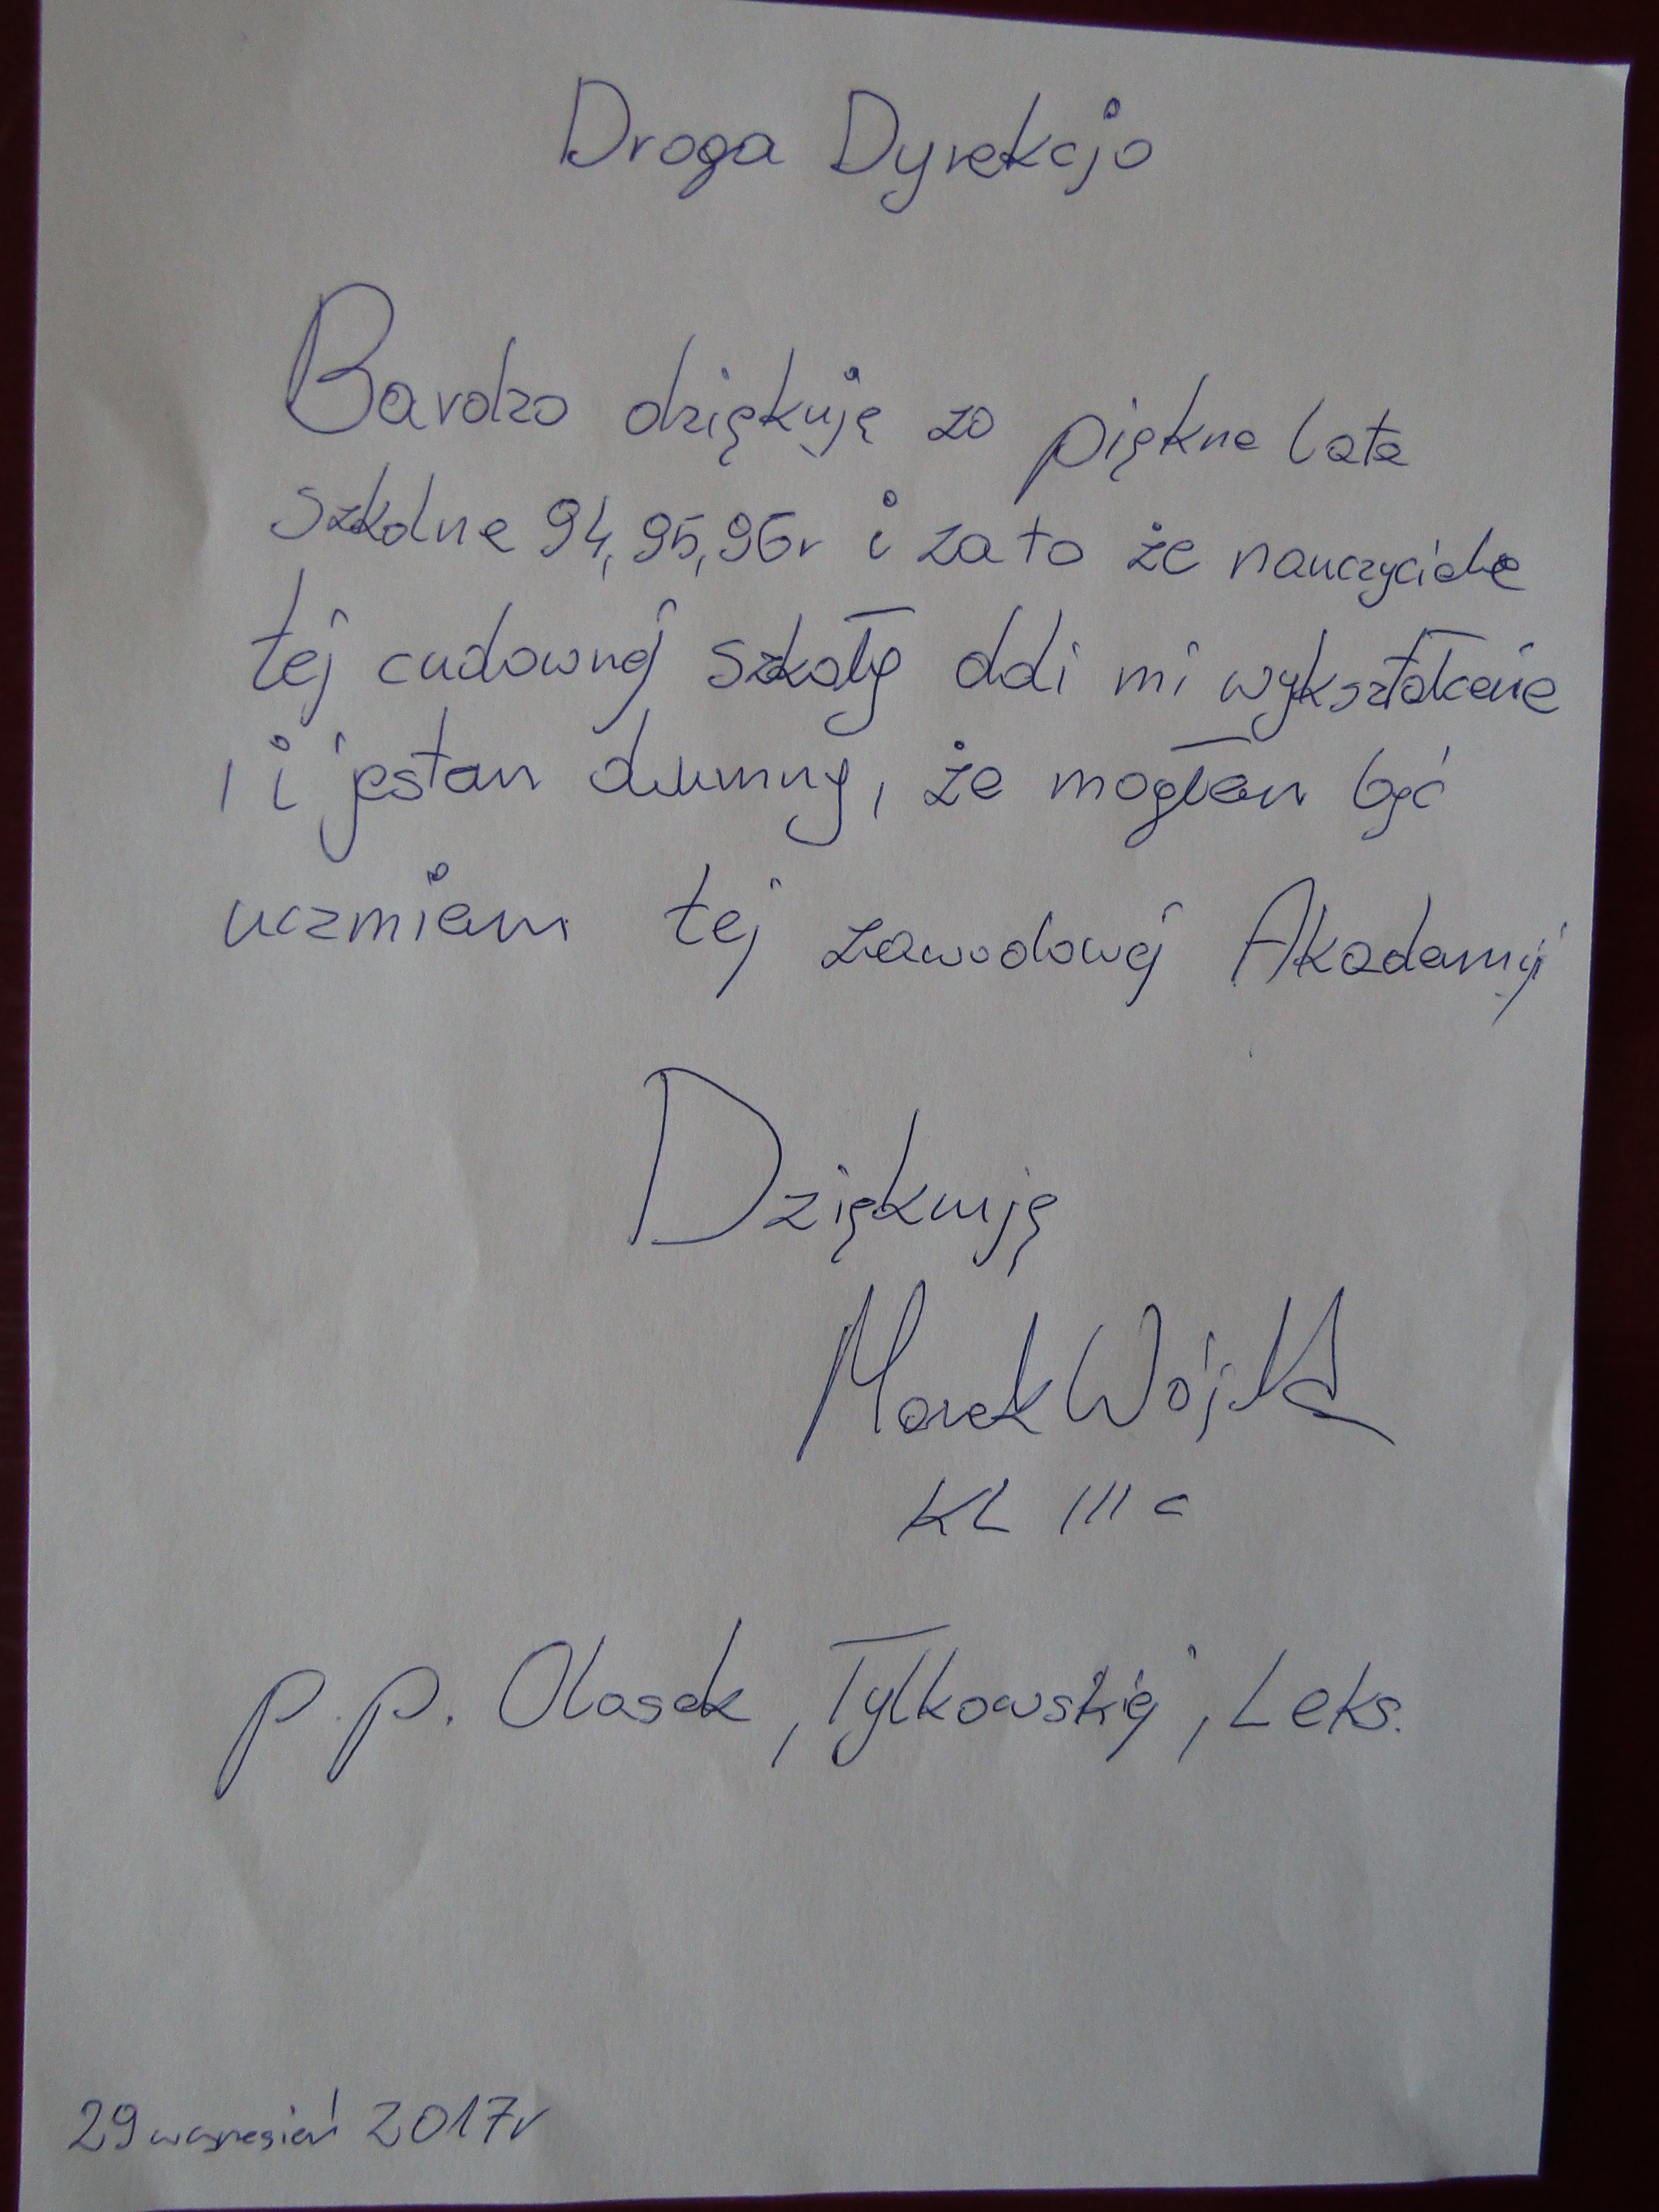 Droga Dyrekcjo
Bardzo dziękuję za piękne lata
szkolne 94, 95, 96r i za to że nauczyciele
tej cudownej szkoły dali mi wykształcenie
i i jestem dumny, że mogłem być
uczniem tej zawodowej Akademii
Dziękuję
Marek Wójcik
KL III c
p.p. Olasek, Tylkowskiej, Leks.
29 wrzesień 2017r